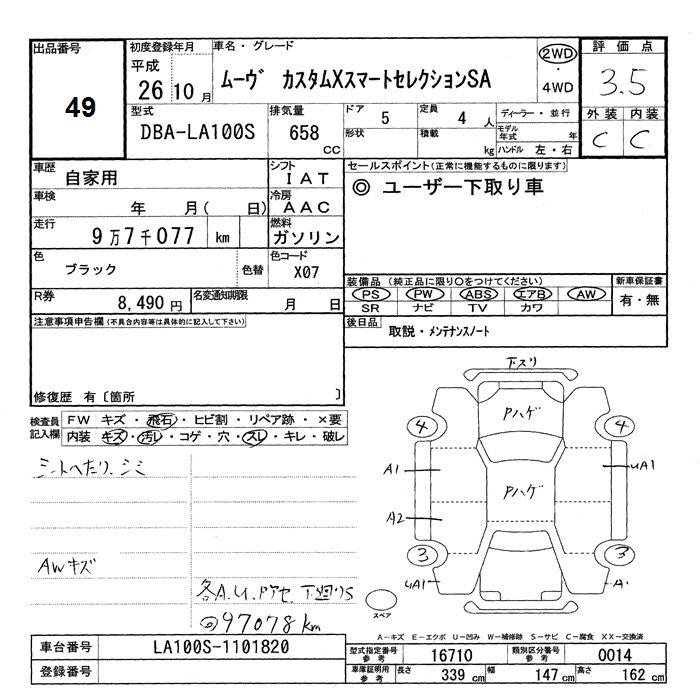 出品番号
49
初度登録年月
平成
26 10 月
車名・グレード
ムーヴ カスタムXスマートセレクションSA
2WD
・
4WD
評価点
3.5
外装 内装
C C
型式
DBA-LA100S
排気量
658
cc
ドア 5
形状
定員 4 人
積載 kg
ディーラー・並行
モデル年式 年
ハンドル 左・右
車歴 自家用
シフト
IAT
車検 年 月( 日)
冷房
AAC
走行 9万7千077 km
燃料
ガソリン
色
ブラック
色替
色コード
X07
R券 8,490 円
名変通知期限 月 日
セールスポイント(正常に機能するものに限ります)
◎ ユーザー下取り車
装備品 (純正品に限り○をつけてください)
PS PW ABS エアB AW
SR ナビ TV カワ
新車保証書
有・無
後日品 取説・メンテナンスノート
注意事項申告欄(不具合内容等は具体的に記入して下さい)
修復歴 有〔箇所 〕
検査員記入欄
FW キズ・飛石・ヒビ割・リペア跡・×要
内装 キズ・汚レ・コゲ・穴・スレ・キレ・破レ
シートへたり、シミ
AWキズ
各A.U.Pアセ 下廻りS
◎97078km
下スリ
Pハゲ
4 4
A1 UA1
Pハゲ
A2
3 3
UA1 A1
スペア
A－キズ E－エクボ U－凹み W－補修跡 S－サビ C－腐食 XX－交換済
車台番号 LA100S-1101820
登録番号
型式指定番号参考 16710
類別区分番号参考 0014
車庫証明用参考 長さ 339 cm 幅 147 cm 高さ 162 cm